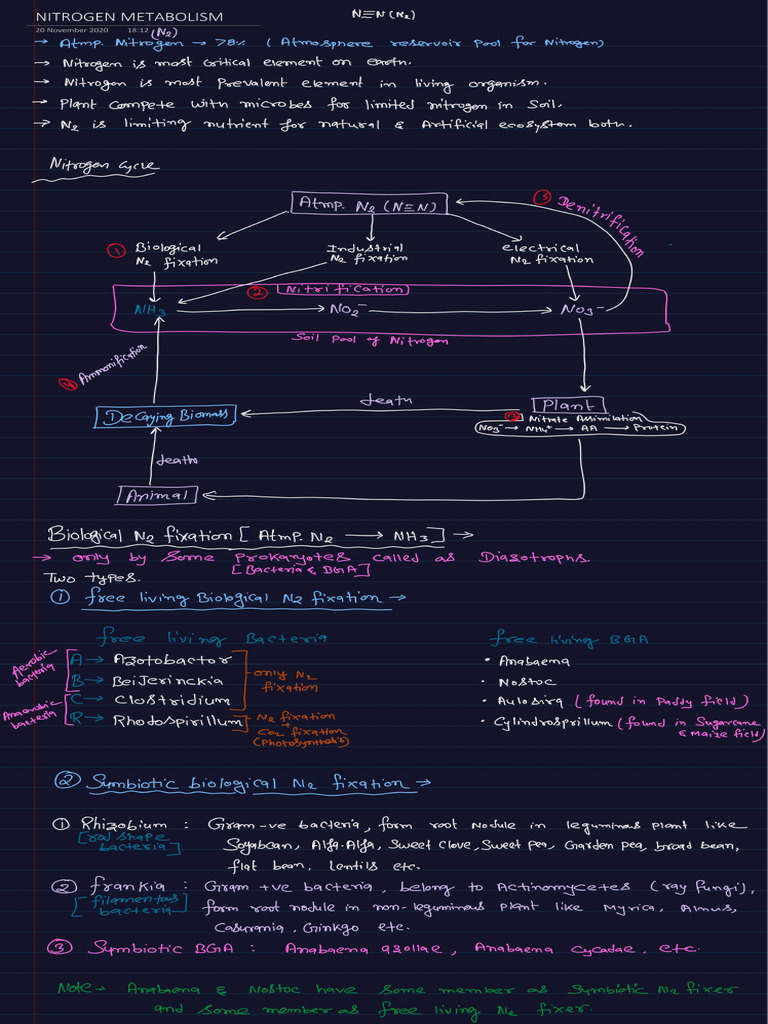 NITROGEN METABOLISM
N≡N (N2)
20 November 2020 18:12
(N2)
→ Atmp. Nitrogen → 78% (Atmosphere reservoir Pool for Nitrogen)
→ Nitrogen is most critical element on earth.
→ Nitrogen is most Prevalent element in living organism.
→ Plant compete with microbes for limited nitrogen in Soil.
→ N2 is limiting nutrient for natural & Artificial ecosystem both.
Nitrogen Cycle
Atmp. N2 (N≡N)
③ Denitrification
① Biological N2 fixation
Industrial N2 fixation
electrical N2 fixation
② Nitrification
NH3 → NO2⁻ → NO3⁻
Soil Pool of Nitrogen
④ Ammonification
Decaying Biomass
death
Plant
② Nitrate Assimilation
NO3⁻ → NH4⁺ → AA → Protein
death
Animal
Biological N2 fixation [Atmp. N2 → NH3] →
→ only by Some Prokaryotes called as Diazotrophs.
[Bacteria & BGA]
Two types.
① free living Biological N2 fixation →
free living Bacteria
free living BGA
Aerobic bacteria
A → Azotobactor
B → Beijerinckia
Anaerobic bacteria
C → Clostridium
R → Rhodospirillum
only N2 fixation
N2 fixation
+
CO2 fixation
(Photosynthesis)
• Anabaena
• Nostoc
• Aulosira (found in Paddy field)
• Cylindrosprillum (found in Sugarcane & Maize field)
② Symbiotic biological N2 fixation →
① Rhizobium : Gram -ve bacteria, form root Nodule in leguminus plant like
[rod shape bacteria]
Soyabean, Alfa-Alfa, Sweet Clove, Sweet Pea, Garden Pea, broad bean,
flat bean, Lentils etc.
② frankia : Gram +ve bacteria, belong to Actinomycetes (ray fungi),
[filamentas bacteria]
form root nodule in non-leguminous plant like Myrica, Almus,
Casurania, Ginkgo etc.
③ Symbiotic BGA : Anabaena azollae, Anabaena cycadae, etc.
Note → Anabaena & Nostoc have Some member as Symbiotic N2 fixer
and some member as free living N2 fixer.